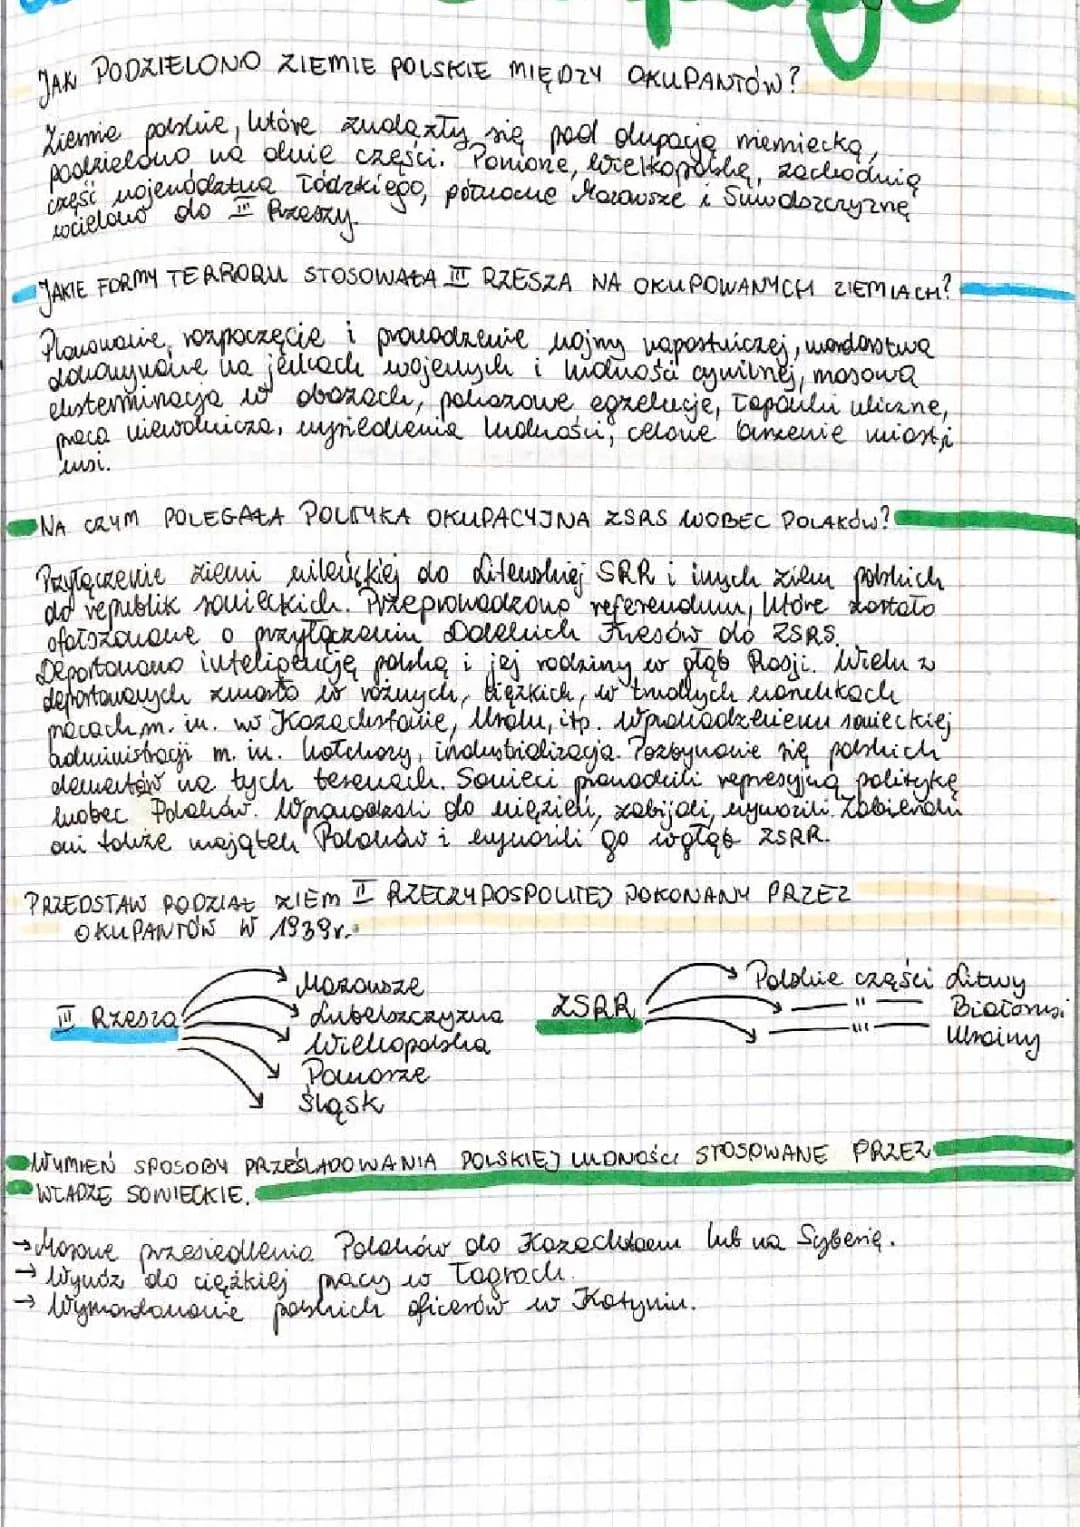 JAK PODZIELONO ZIEMIE POLSKIE MIĘDZY OKUPANTÓW?
Ziemie polskie, które znalazły się pod okupacją niemiecką,
podzielono na dwie części. Pomorze, Wielkopolskę, zachodnią
część województwa łódzkiego, północne Mazowsze i Suwalszczyznę
wcielono do III Rzeszy.
JAKIE FORMY TERRORU STOSOWAŁA III RZESZA NA OKUPOWANYCH ZIEMIACH?
Planowanie, rozpoczęcie i prowadzenie wojny napastniczej, morderstwa
dokonywane na jeńcach wojennych i ludności cywilnej, masowa
eksterminacja w obozach, pokazowe egzekucje, łapanki uliczne,
praca niewolnicza, wysiedlenia ludności, celowe burzenie miast i
wsi.
NA CZYM POLEGAŁA POLITYKA OKUPACYJNA ZSRS WOBEC POLAKÓW?
Przyłączenie ziemi wileńskiej do Litewskiej SRR i innych ziem polskich
do republik sowieckich. Przeprowadzono referendum, które zostało
ofałszowane o przyłączeniu Dalekich Kresów do ZSRS.
Deportowano inteligencję polską i jej rodziny w głąb Rosji. Wielu z
deportowanych zmarło w różnych, ciężkich, w trudnych warunkach
pracach m. in. w Kazachstanie, Uralu, itp. Wprowadzeniem sowieckiej
administracji m. in. kołchozy, industrializacja. Pozbywanie się polskich
elementów na tych terenach. Sowieci prowadzili represyjną politykę
wobec Polaków. Wprowadzali do więzień, zabijali, wywozili. Zabierali
oni także majątek Polaków i wywozili go wgłąb ZSRR.
PRZEDSTAW PODZIAŁ ZIEM II RZECZYPOSPOLITEJ DOKONANY PRZEZ
OKUPANTÓW W 1939r.
III Rzesza
Mazowsze
Lubelszczyzna
Wielkopolska
Pomorze
Śląsk
ZSRR
Polskie części Litwy
—"— Białorusi
—"— Ukrainy
WYMIEŃ SPOSOBY PRZEŚLADOWANIA POLSKIEJ LUDNOŚCI STOSOWANE PRZEZ
WŁADZĘ SOWIECKIE.
→ Masowe przesiedlenia Polaków do Kazachstanu lub na Syberię.
→ Wywóz do ciężkiej pracy w łagrach.
→ Wymordowanie polskich oficerów w Katyniu.